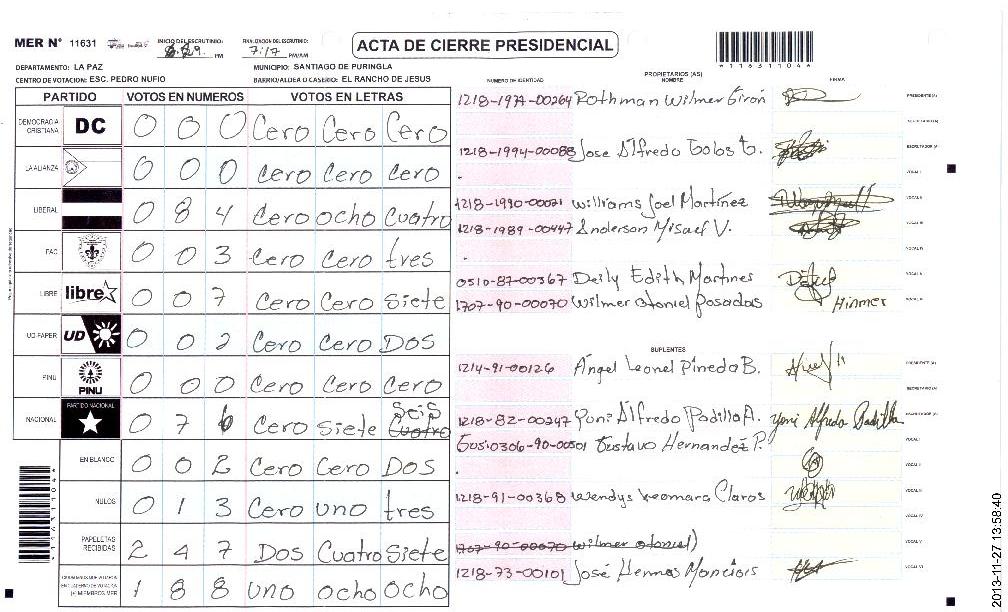 MER N° 11631
INICIO DEL ESCRUTINIO: PM
FINALIZACION DEL ESCRUTINIO: 7:17 PM/AM
ACTA DE CIERRE PRESIDENCIAL
116311046
DEPARTAMENTO: LA PAZ
MUNICIPIO: SANTIAGO DE PURINGLA
CENTRO DE VOTACION: ESC. PEDRO NUFIO
BARRIO/ALDEA O CASERIO: EL RANCHO DE JESUS
NUMERO DE IDENTIDAD PROPIETARIOS (AS) NOMBRE FIRMA
PARTIDO VOTOS EN NUMEROS VOTOS EN LETRAS
DEMOCRACIA CRISTIANA DC 0 0 0 Cero Cero Cero
LA ALIANZA 0 0 0 Cero Cero Cero
LIBERAL 0 8 4 Cero ocho Cuatro
PAC 0 0 3 Cero Cero tres
LIBRE libre 0 0 7 Cero Cero Siete
UD-FAPER UD 0 0 2 Cero Cero DOS
PINU PINU 0 0 0 Cero Cero Cero
NACIONAL PARTIDO NACIONAL 0 7 6 Cero Siete Seis Cuatro
EN BLANCO 0 0 2 Cero Cero DOS
NULOS 0 1 3 Cero uno tres
PAPELETAS RECIBIDAS 2 4 7 Dos Cuatro Siete
1 8 8 uno ocho ocho
1218-1971-00264 Rothman Wilmer Girón PRESIDENTE(A)
SECRETARIO(A)
1218-1994-00088 Jose Alfredo ESCRUTADOR (A)
VOCAL I
1218-1990-00021 Williams Joel Martínez VOCAL II
1218-1989-00447 Anderson Misael V. VOCAL III
VOCAL IV
0510-87-00367 Deily Edith Martines VOCAL V
1707-90-00070 Wilmer otoniel Posadas Hinmer
SUPLENTES
1214-91-00126 Ángel Leonel Pineda B. PRESIDENTE (A)
SECRETARIO (A)
1218-82-00247 Yoni Alfredo Padilla A. Yoni Alfredo Padilla
0306-90-00501 Gustavo Hernandez P. VOCAL I
VOCAL II
1218-91-00368 Wendys Xeomara Claros VOCAL III
VOCAL IV
1707-90-00070 Wilmer otoniel) VOCAL V
1218-73-00101 José Hermes VOCAL VI
116311046
2013-11-27 13:58:40